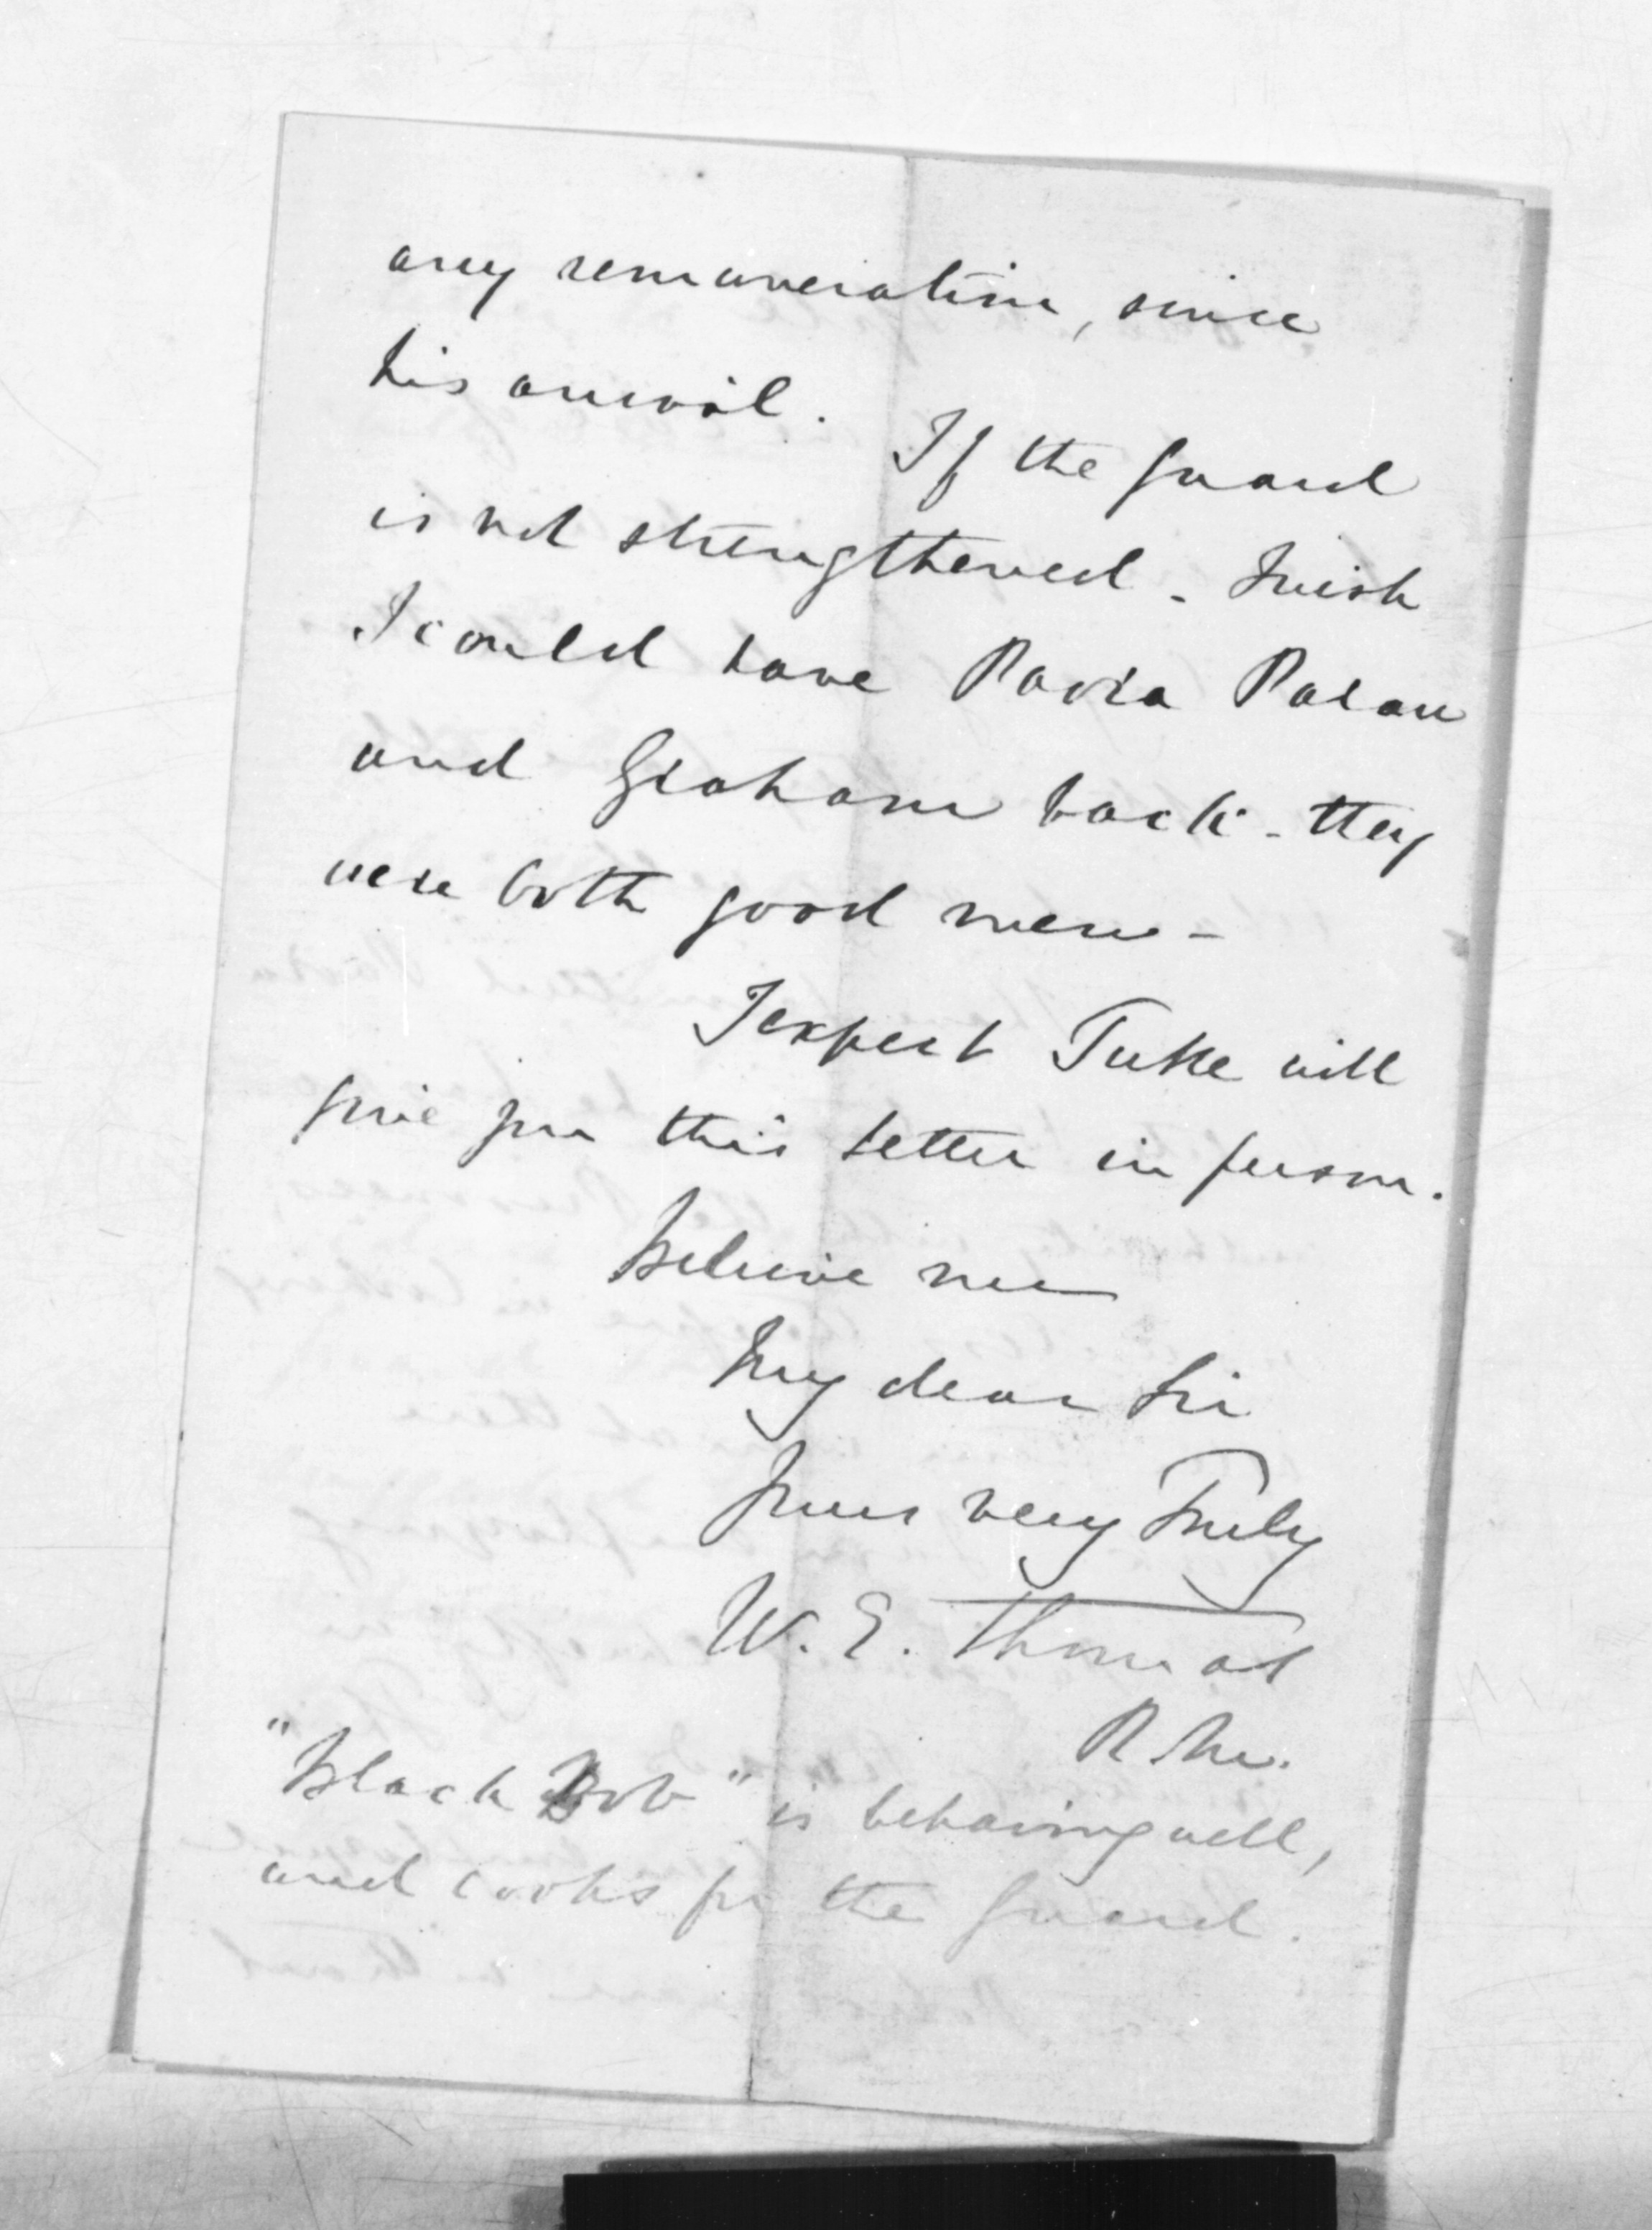 any remuneration, since
his arrival.
If the guard
is not strengthened - I wish
I could have Pavia Patau
and Graham back - they
were both good men -
I expect Tuke will
give you this letter in person.
Believe me
My dear Sir
Yours very Truly
W. E. Thomas
R. M.
"Black Bob" is behaving well,
and cooks for the Guard.